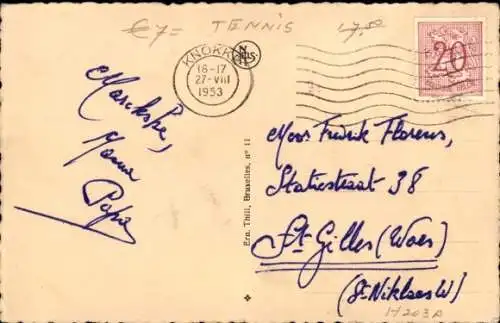 €7= TENNIS 17,50
KNOKKE
16-17
27-VIII
1953
20
Mama
Papa
Ern. Thill, Bruxelles, n° 11
Florens,
Statiestraat 38
St-Gilles (Waes)
(St-Niklaas W)
H203A